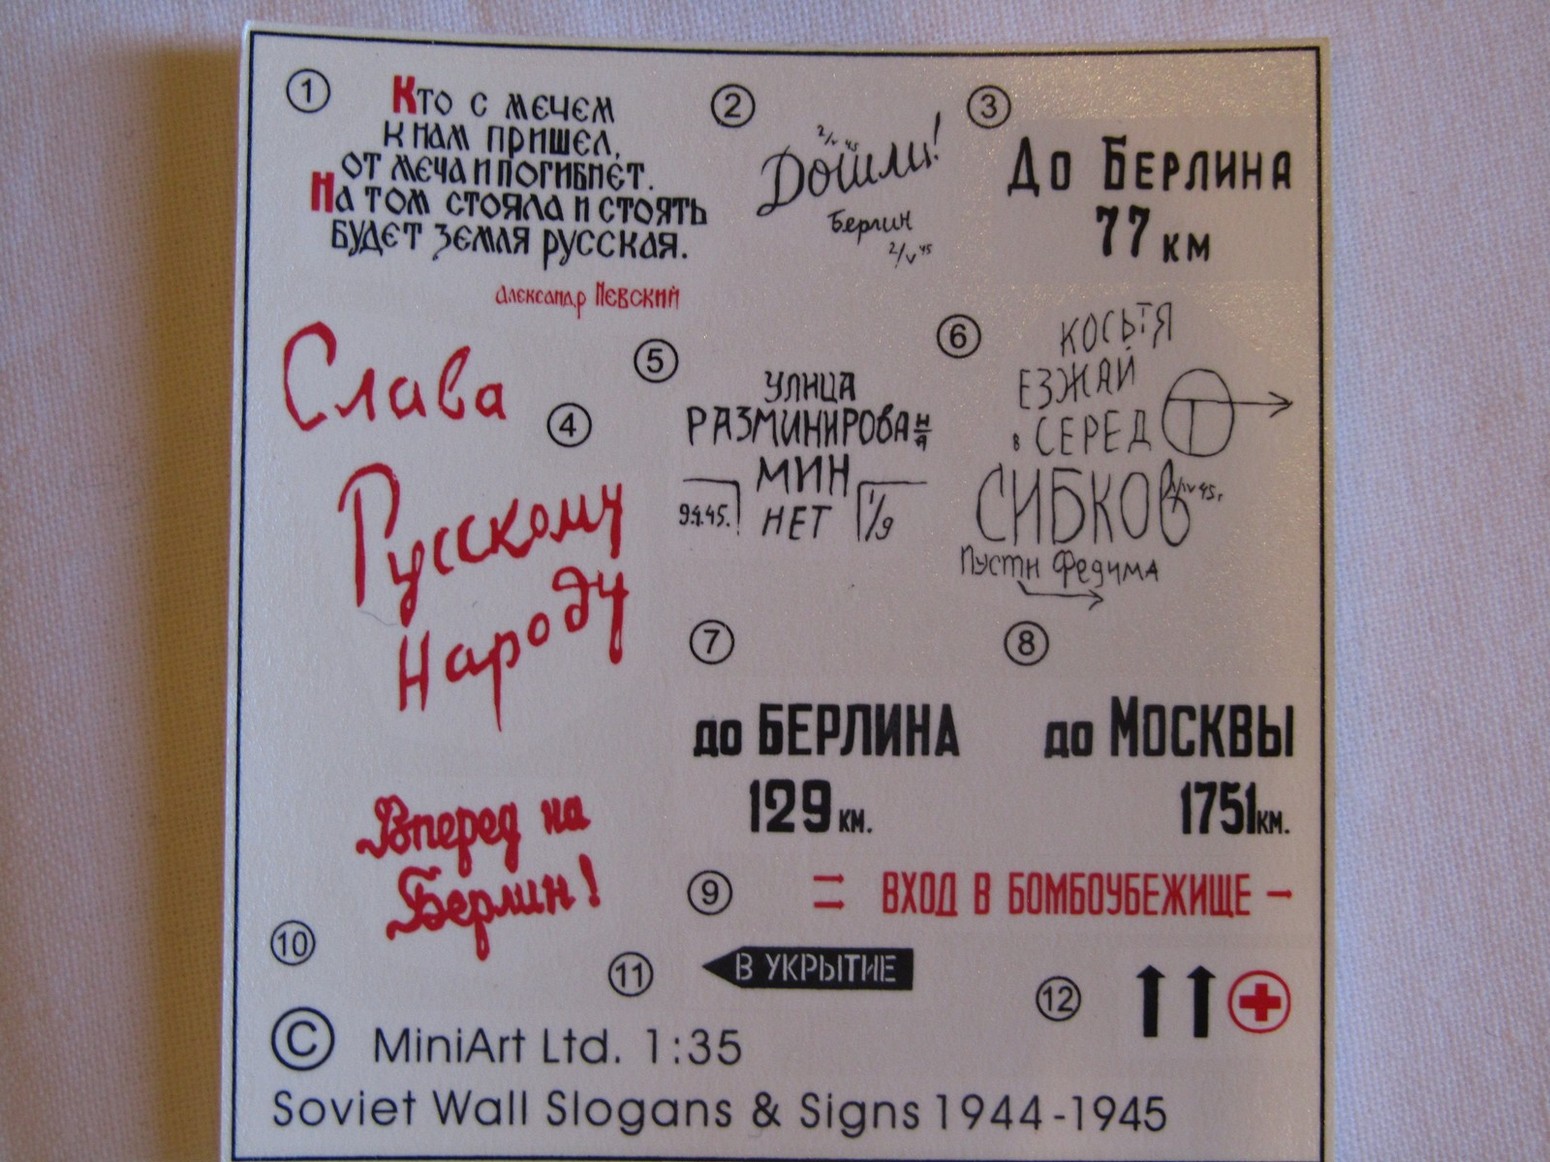 1
Кто с мечем
к нам пришел,
от меча и погибнет.
На том стояла и стоять
будет земля русская.
Александр Невский
2
2/V 45
Дошли!
Берлин
2/V 45
3
До Берлина
77 км
Слава
4
Русскому
Народу
5
УЛИЦА
РАЗМИНИРОВАННА
МИН
НЕТ
9.4.45.
1/9
6
КОСЬТЯ
ЕЗЖАЙ
в СЕРЕД
СИБКОВ
/IV 45г
Пусти Федима
7
до БЕРЛИНА
129 км.
8
до МОСКВЫ
1751 км.
Вперед на
Берлин!
9
ВХОД В БОМБОУБЕЖИЩЕ
10
11
В УКРЫТИЕ
12
© MiniArt Ltd. 1:35
Soviet Wall Slogans & Signs 1944-1945